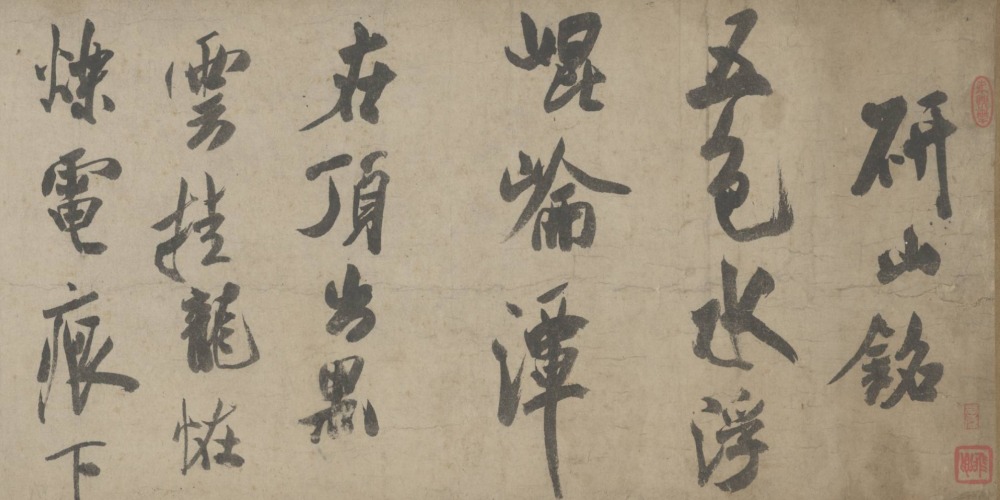 研山銘
五色水浮
崐崘潭
在頂出黑
雲挂龍怪
爍電痕下